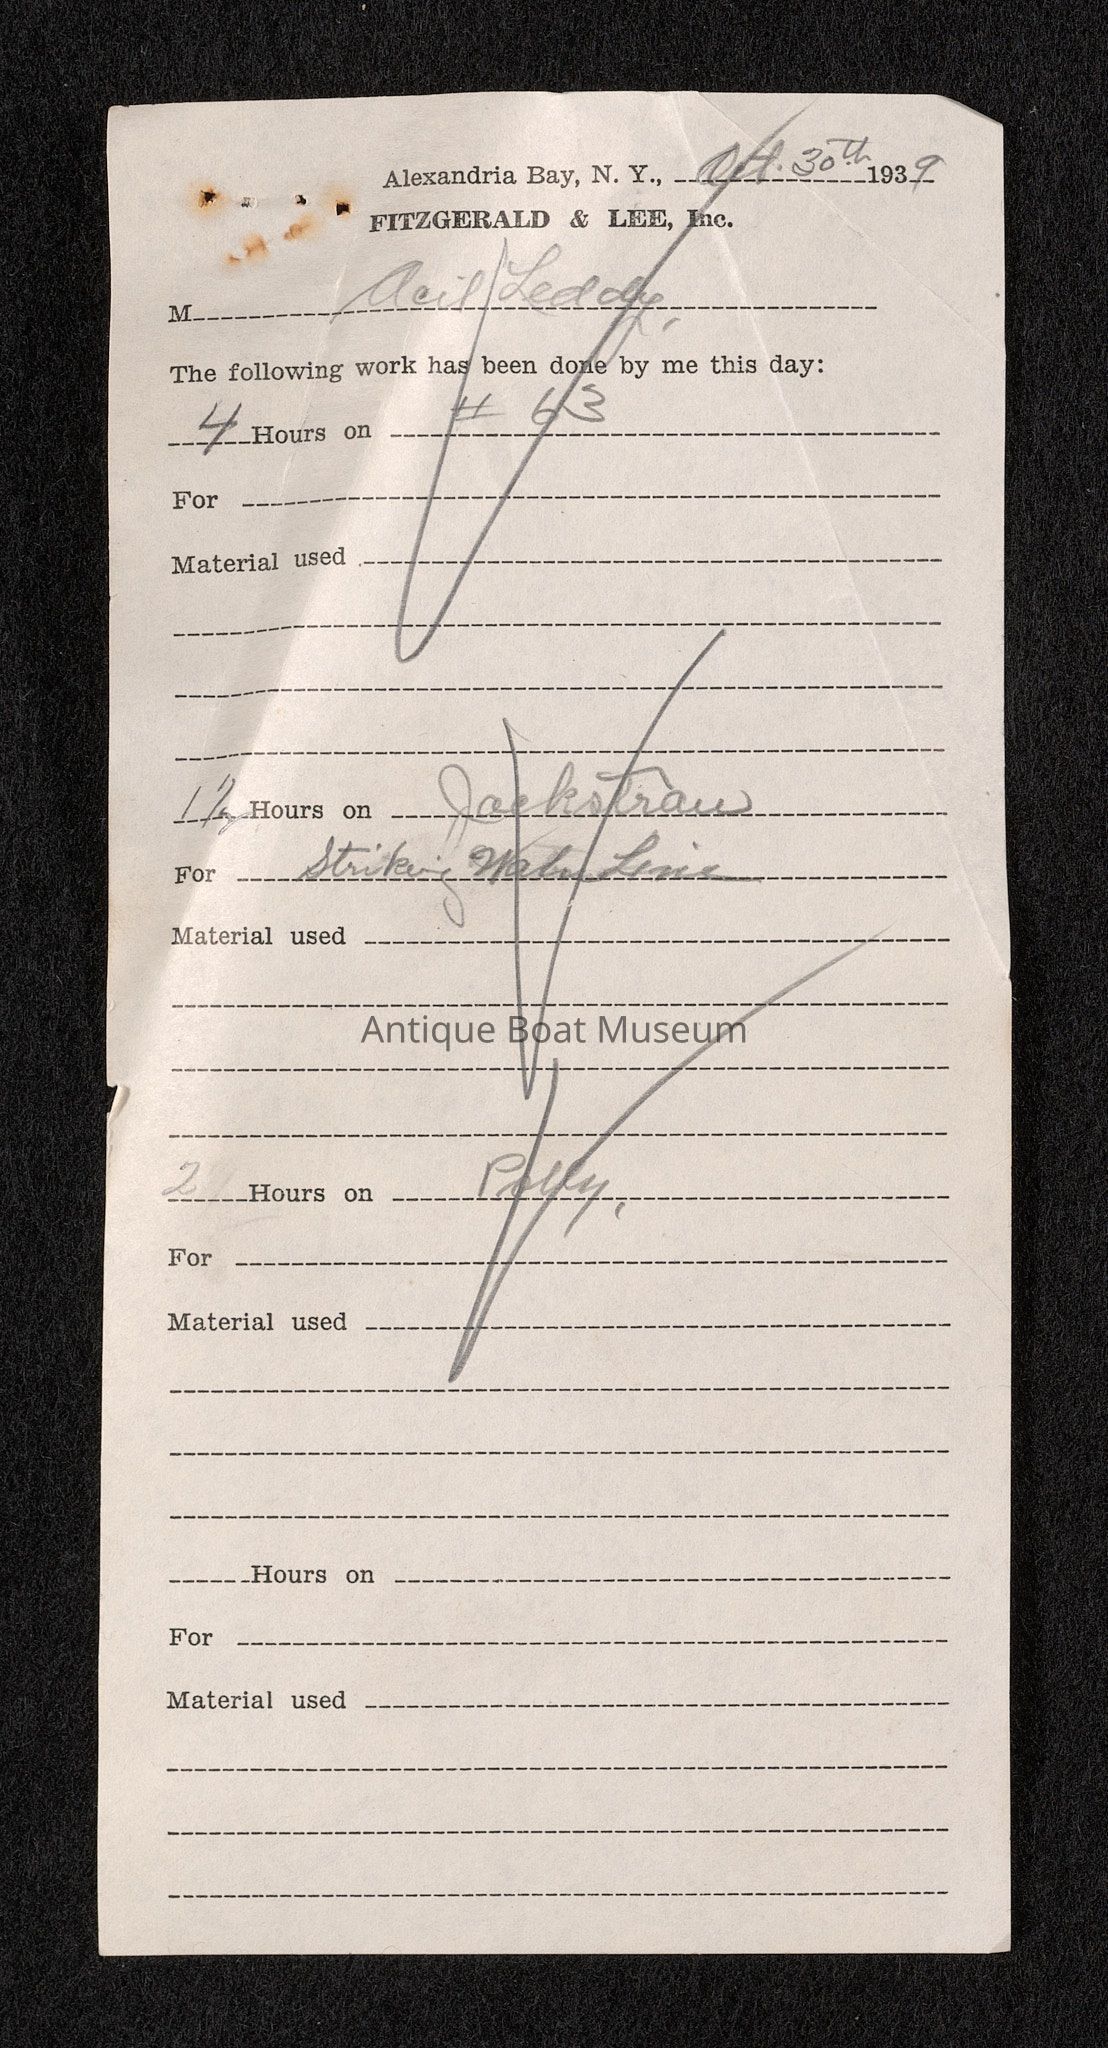 Alexandria Bay, N. Y., Oct. 30th 1939
FITZGERALD & LEE, Inc.
M Acil Leddy,
The following work has been done by me this day:
4 Hours on # 63
For
Material used
1 1/2 Hours on Jackstraw
For Striking Water Line
Material used
Antique Boat Museum
2 Hours on Polly,
For
Material used
Hours on
For
Material used